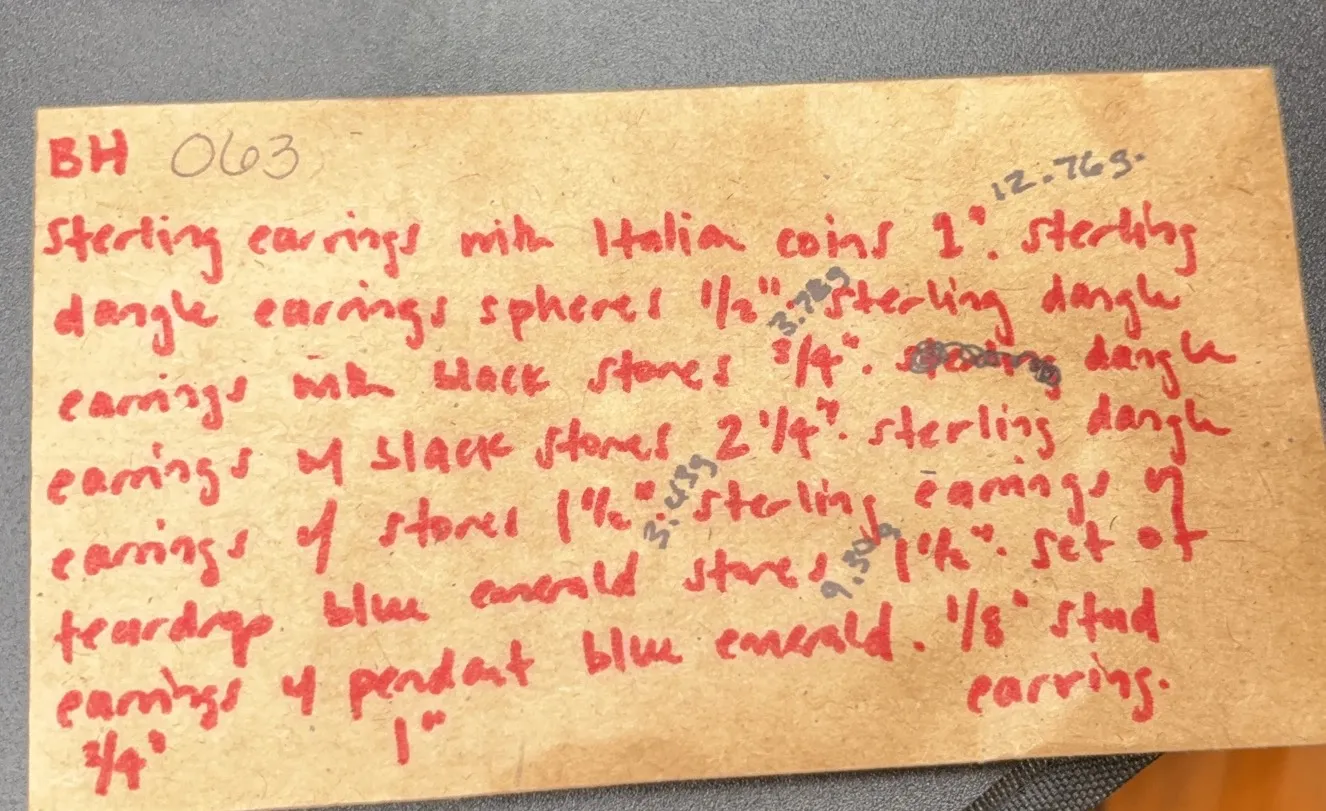 BH 063
12.76g.
Sterling earrings with Italian coins 1". sterling
dangle earrings spheres 1/2". sterling dangle
3.78g
earrings with black stones 3/4". dangle
earrings w/ black stones 2 1/4". sterling dangle
earrings w/ stones 1 1/2". sterling earrings w/
3.43g
teardrop blue emerald stones 1 1/2". set of
9.50g
earrings w/ pendant blue emerald. 1/8" stud
3/4" 1" earring.